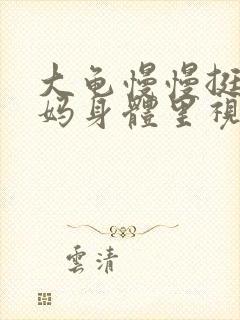 大龟慢慢挺
妈身體里視
雲清